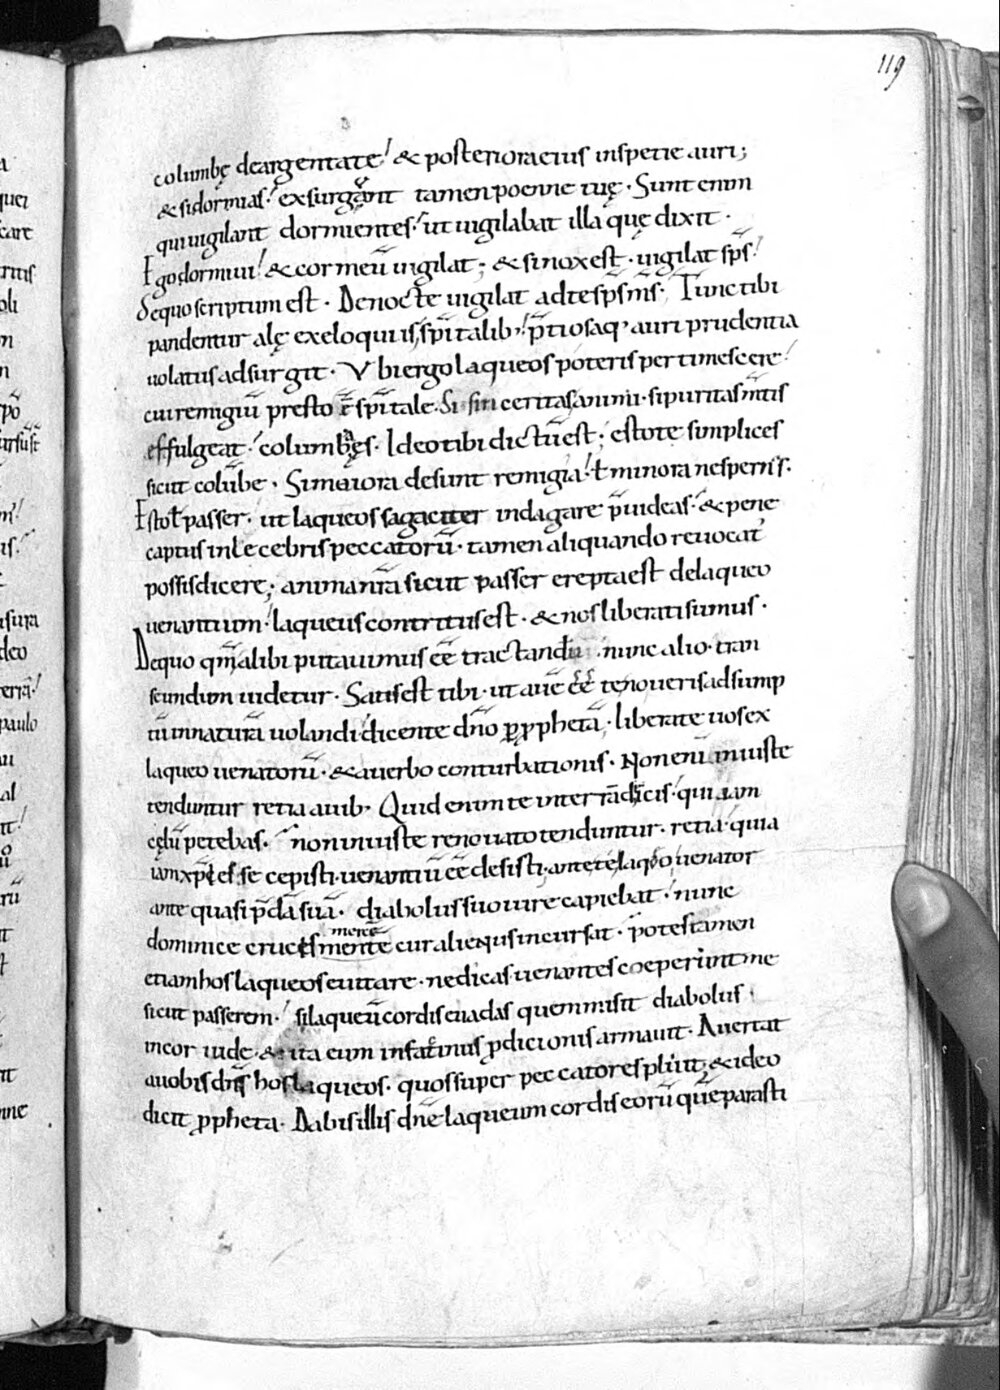 119
columbę deargentate & posterioraeius inspetie auri;
& sidormias. exsurgant tamenpoenne tuę. Sunt enim
quiuigilant dormientes. ut uigilabat illa quę dixit.
Egodormiui & cor meū uigilat; & sinoxest. uigilat sps̄
Dequoscriptum est. Denocte uigilat adtespsm̄s. Tunctibi
pandentur alę exeloquiis, sp̄italib; p̄tiosaq; auri prudentia
uolatusadsurgit. Vbiergolaqueospoterispertimescere
cuiremigiū presto ē sp̄itale. Sisinceritasanimi. sipuritasm̄tis
effulgeat columbęs. Ideotibidictūest; estote simplices
sicut colūbe. Simaiora desunt remigia ł minora nesperneris.
Estoł passer. ut laqueossagaciter indagare p̄uideas. & pene
captus inlecebrispeccatorū. tamen aliquando reuocat'
possisdicere; animanr̄a sicut passer ereptaest delaqueo
uenantium laqueuscontritusest. & nosliberatisumus.
Dequo qm̄alibi putauimus eē tractandū. nunc alio tran
seundum uidetur. Satisest tibi. ut auē eē tenouerisadsump
tūinnaturā uolandi dicente dn̄o p̱p̱pheta. liberate uosex
laqueo uenatorū. & auerbo conturbationis. Nonenī iniuiste
tenduntur retia auib; Quid enimte inter rādicis qui iam
cęlū petebas. noniniuiste renouatotenduntur. retia quia
iamxp̄i esse cepisti. uenantiū eē desisti. antetelaq̊o uenator
ante quasi p̄dāsuā. diabolussuoiure capiebat. nunc
mercē
dominice crucismente curalienusincursat. potestamen
etiamhoslaqueoseuitare. nedicasuenantescoeperuntme
sicut passerem. silaqueūcordiseuadas quemmisit diabolus.
incor iude. & ita eum infacinus p̱dicionisarmauit. Auertat
auobisdn̄s hoslaqueos. quossuper peccatorespluit; & ideo
dicit p̱pheta. Dabisillis dn̄e laqueum cordiseorū quēparasti